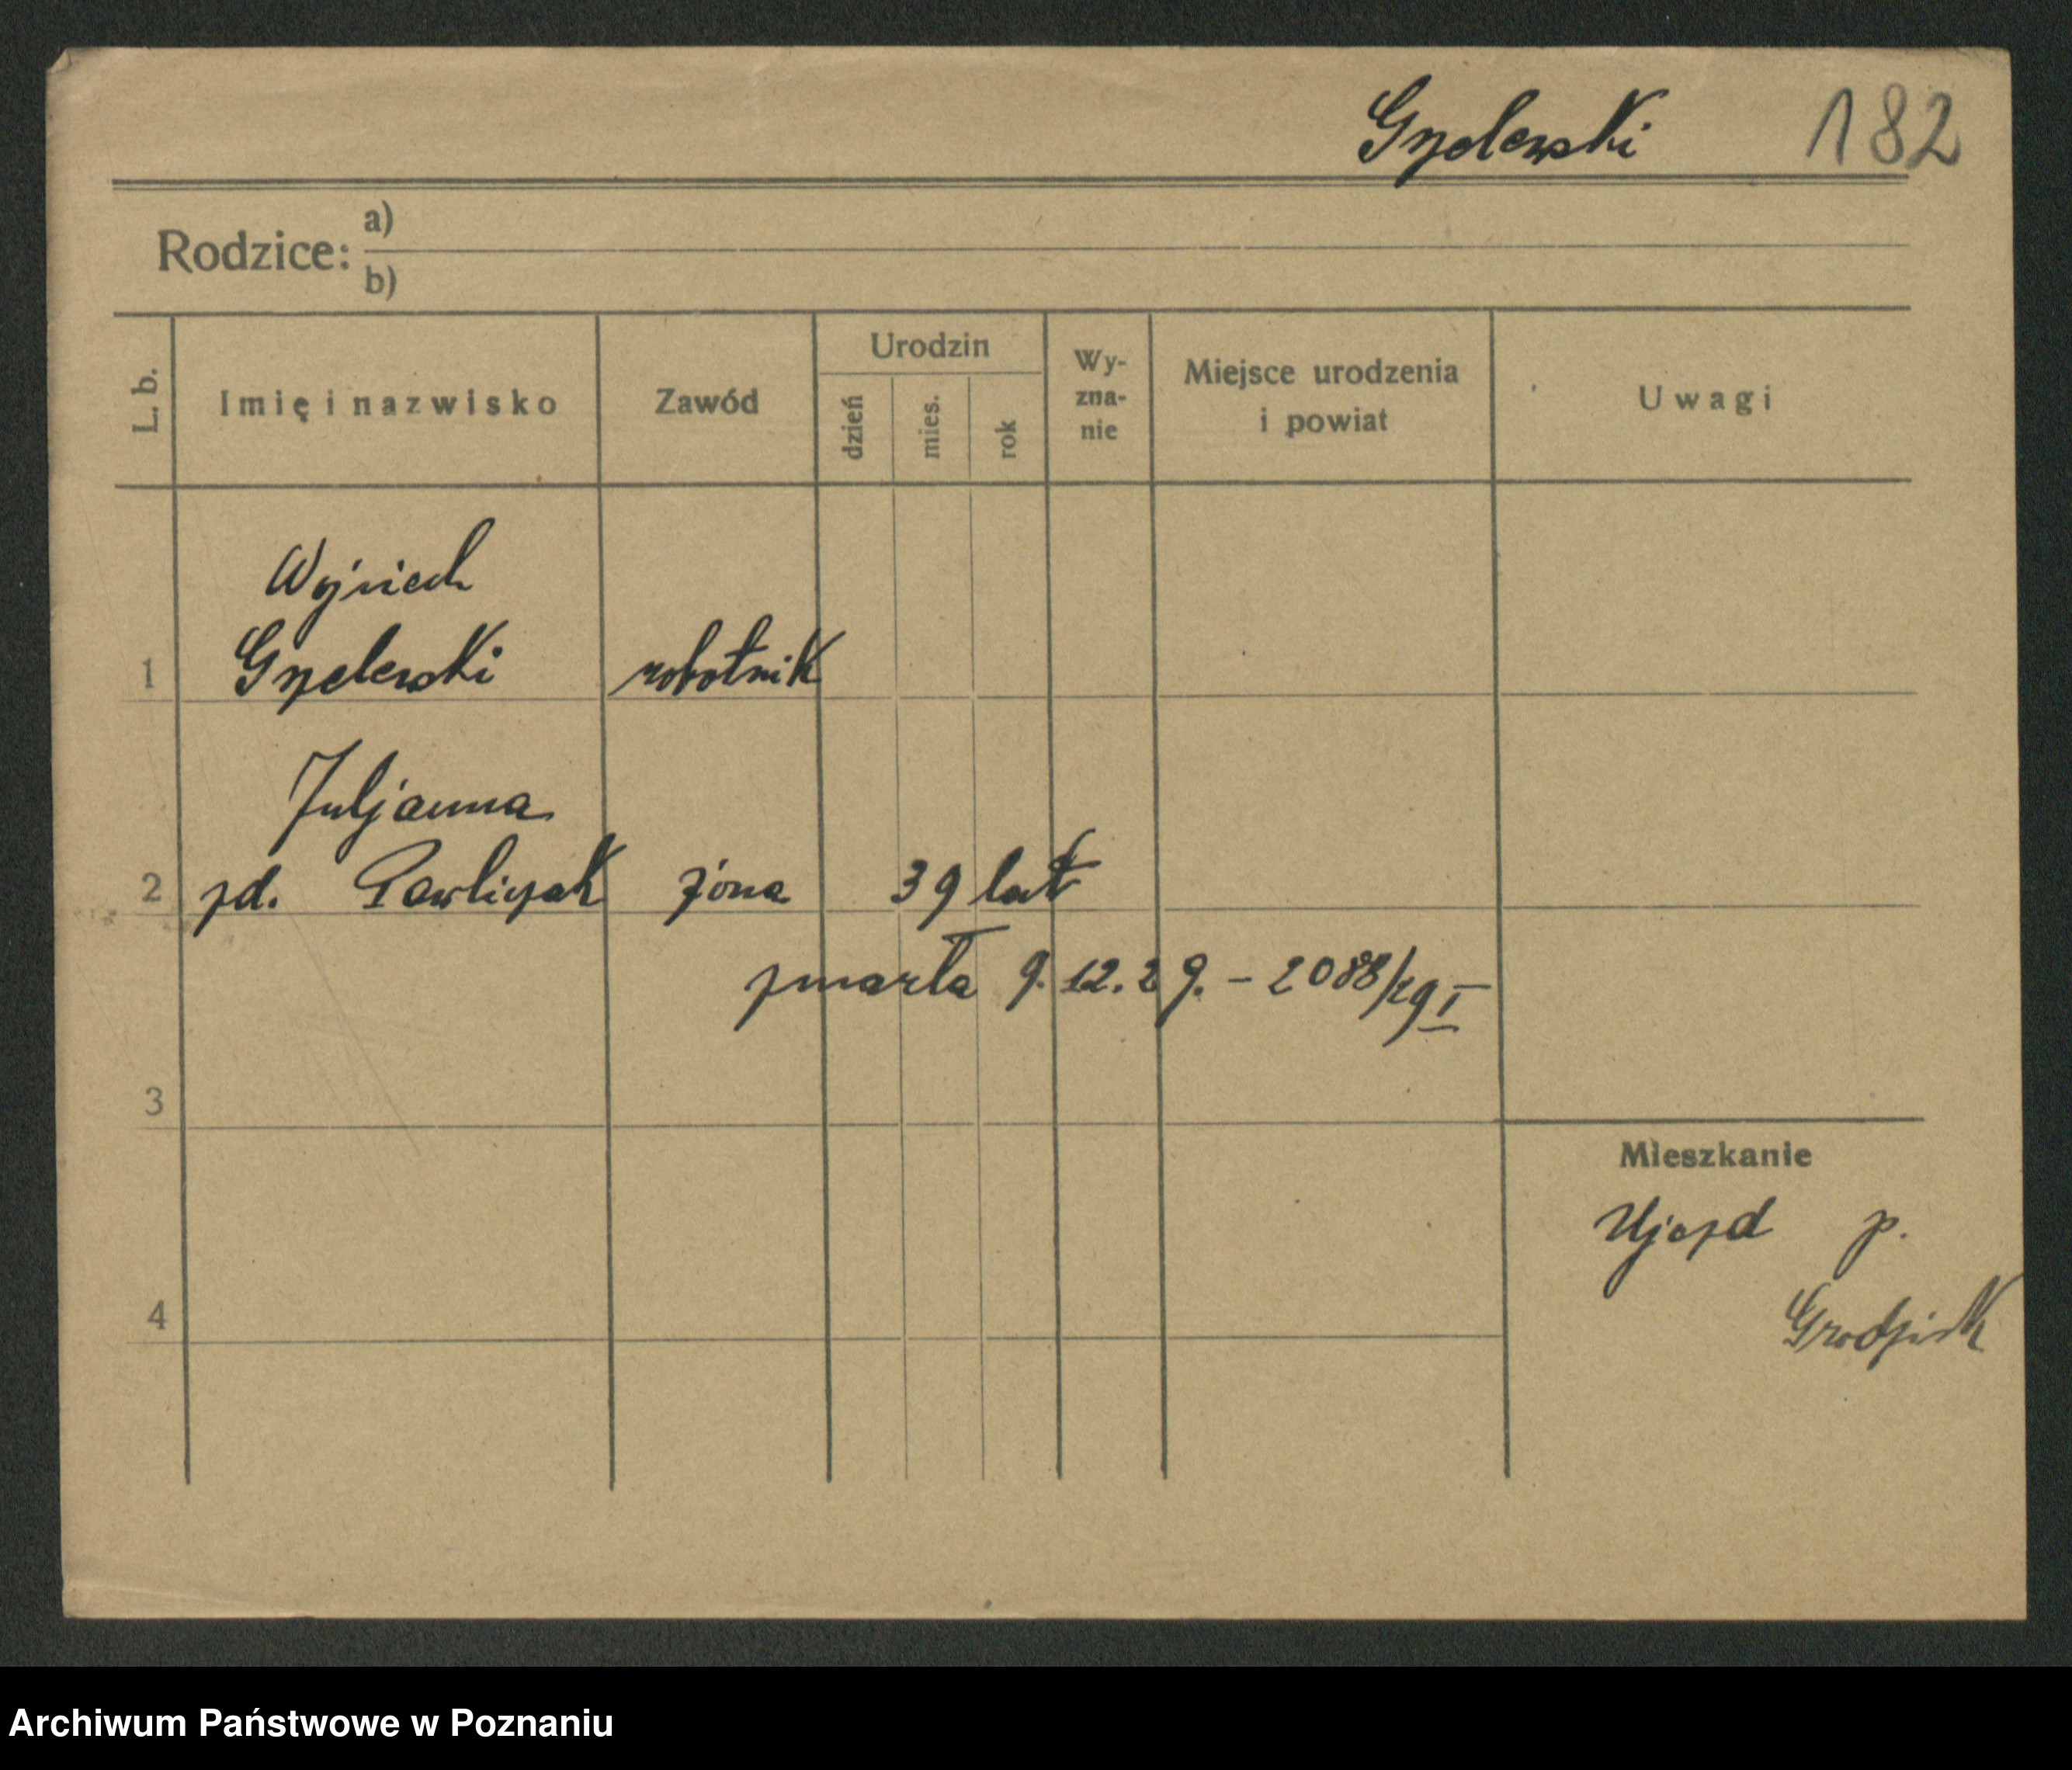 Gzelewski 182
Rodzice: a)
b)
L. b. Imię i nazwisko Zawód Urodzin dzień mies. rok Wy-zna-nie Miejsce urodzenia i powiat Uwagi
Wojciech
1 Gzelewski robotnik
Juljanna
2 zd. Pawliczak żona 39 lat
zmarła 9.12.29. – 2088/29 I
3
Mieszkanie
Ujazd p.
4 Grodzisk
Archiwum Państwowe w Poznaniu